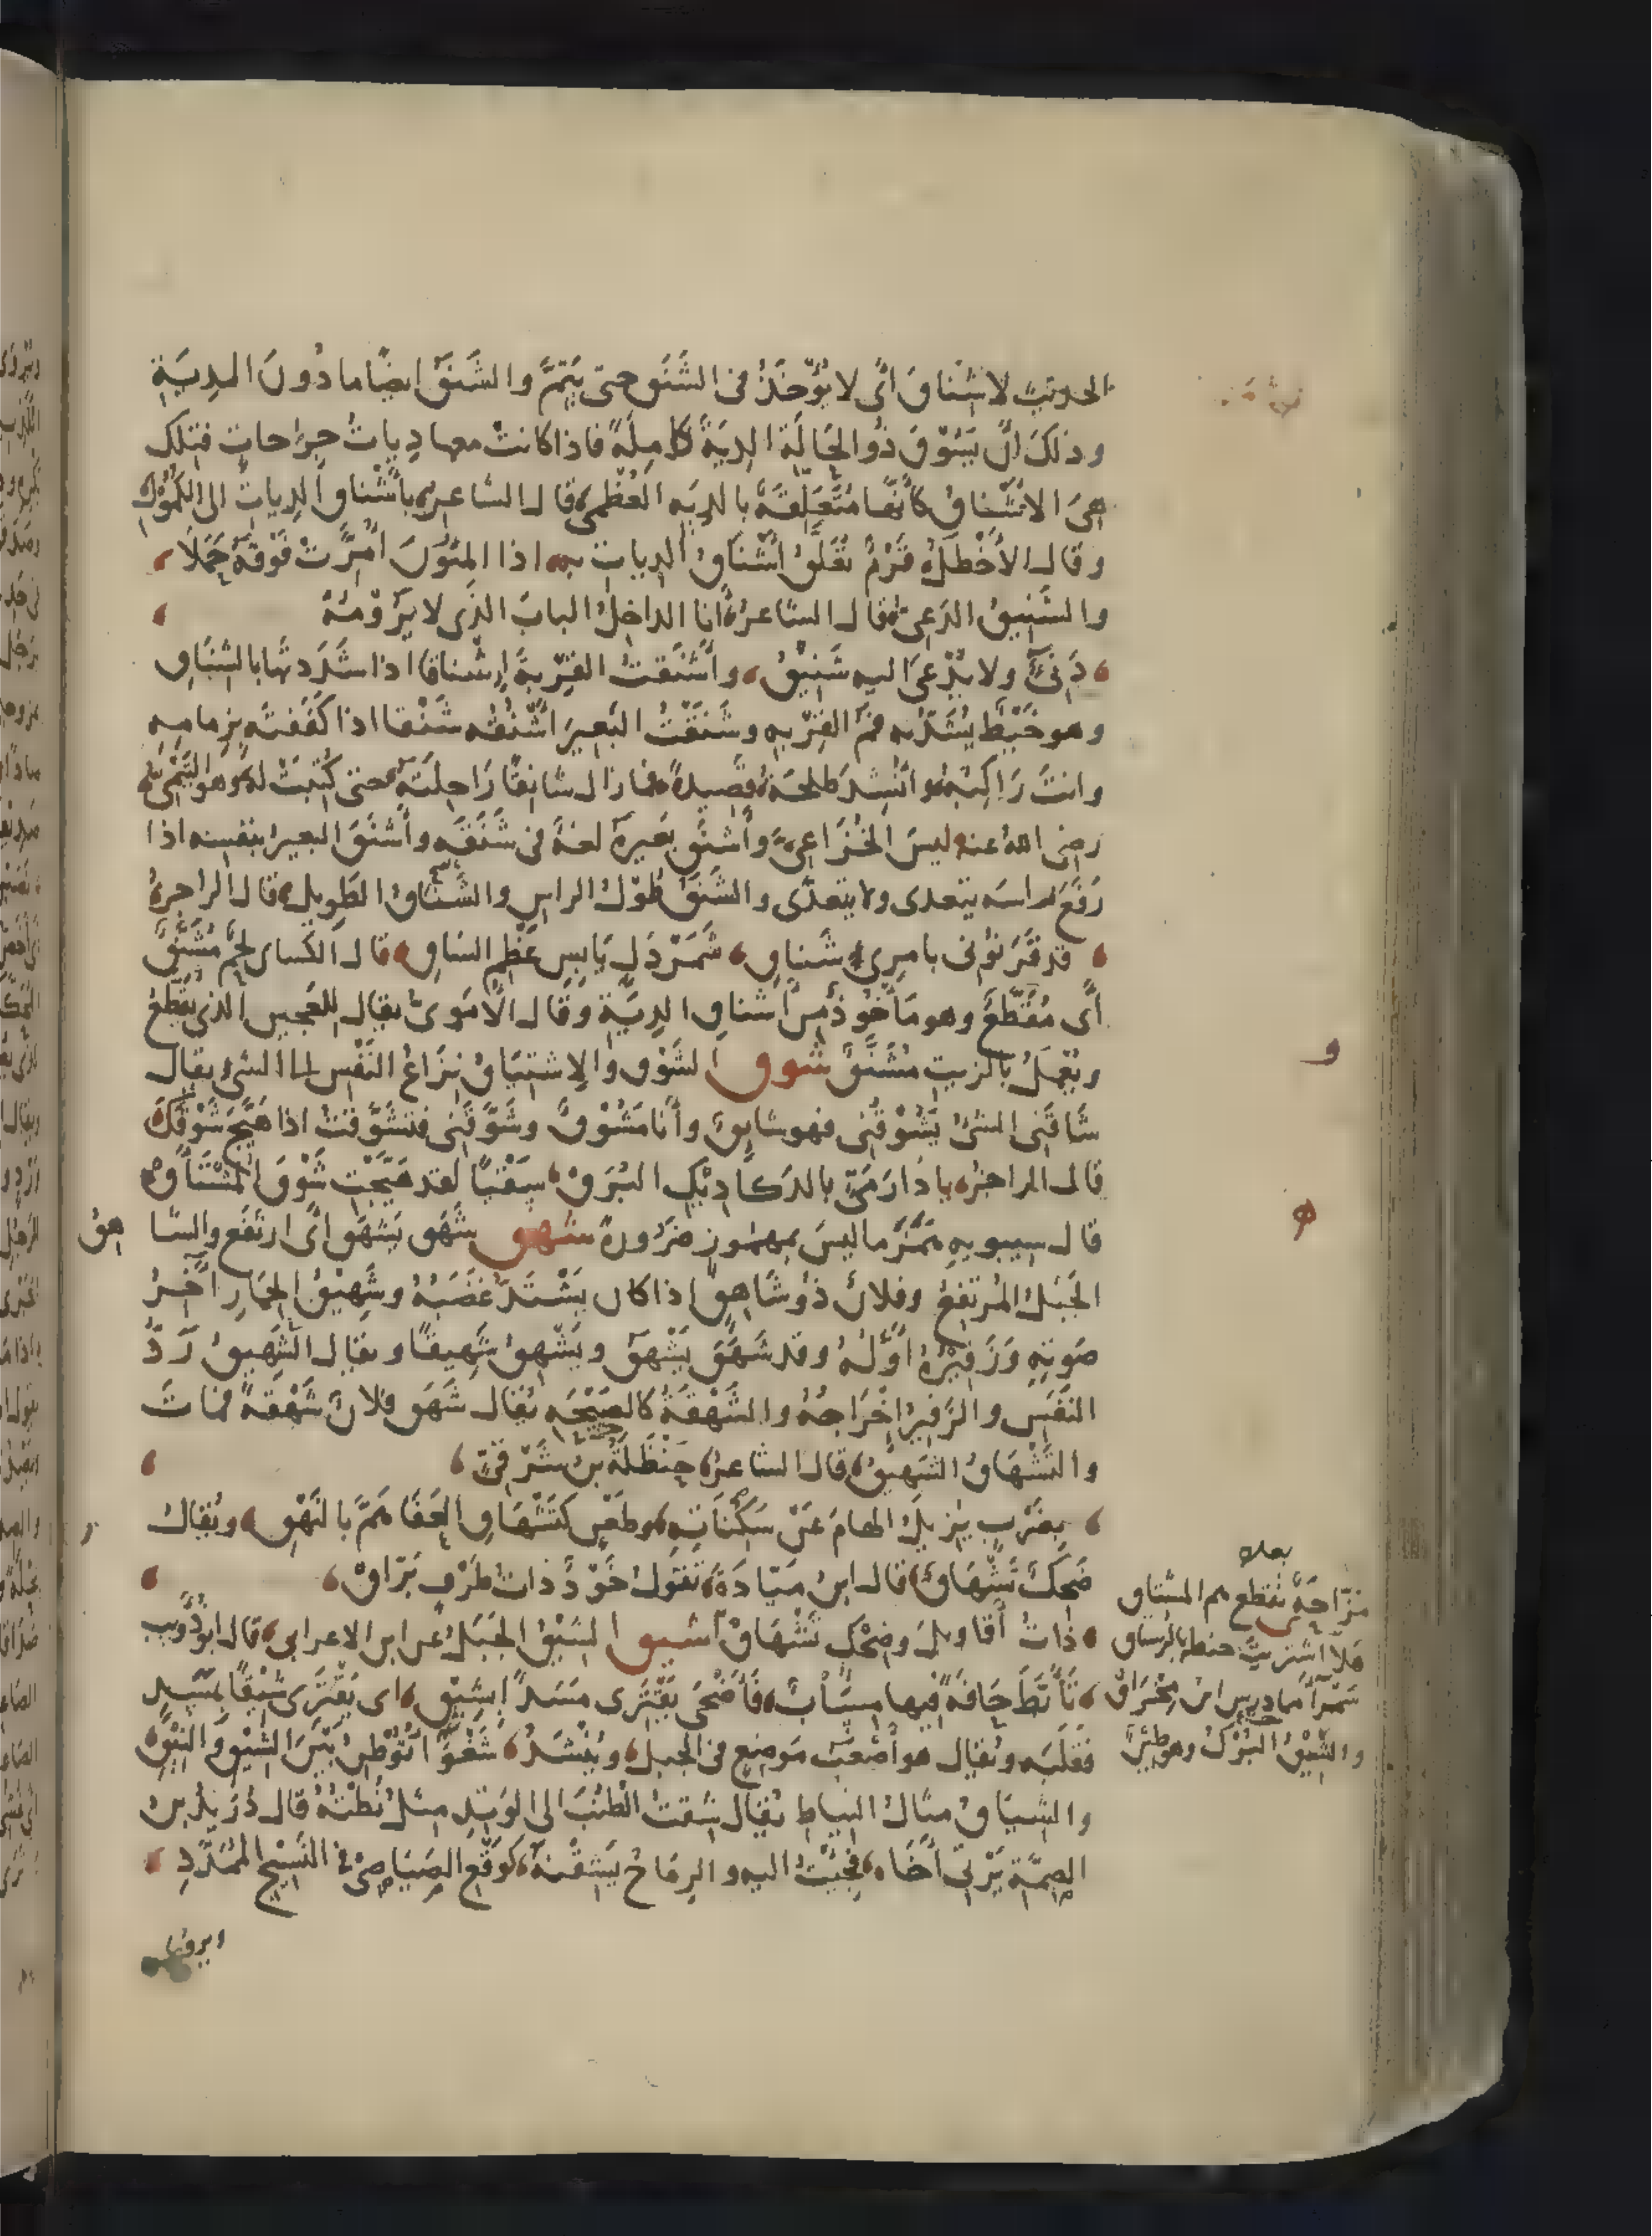 الحديثِ لا شِناقَ أى لا يُؤْخَذُ من الشَنَق حتى يَتِمَّ والشَنَقُ ايضًا ما دُونَ الدِيَةِ
وذلكَ أنْ يَسُوْقَ ذُو الحَمَالَةِ الدِيَةَ كامِلَةً فاذا كانتْ معها دِياتُ جِراحاتٍ فتلك
هِىَ الاشْناقُ كأنَّها مُتَعَلِّقَةٌ بالدِيَةِ العُظْمَى قال الشاعر بأَشْناقِ الدِياتِ الى الكُمُوْلِ
وقال الأخْطَلُ قَرْمٌ تُعَلَّقُ أشْناقُ الدياتِ به اذا المِئُونَ أُمِرَّتْ فَوْقَهُ حَمَلَا
والشَنِيقُ الدَعِىُّ قال الشاعر أنا الداخِلُ البابَ الذى لا يَرُوْمُهُ
دَنِىٌّ ولا يُدْعَى اليه شَنِيْقُ وأشْنَقْتُ القِرْبةَ إشْناقا اذا شَدَدْتَها بالشِناقِ
وهو خَيْطٌ يُشَدُّ به فَمُ القِرْبةِ وشَنَقْتُ البَعِيرَ أشْنُقُه شَنْقا اذا كَفَفتَه بزِمامِه
وانتَ راكِبُهُ وأُنْشِدَ طلحَةُ قَصِيدةً فما زال شانِقًا راحِلَتَهُ حتى كُتِبَتْ له وهو التَيْمِىُّ
رضى الله عنه ليسَ الخُزَاعِىَّ وأشْنَقَ بَعيرَهُ لغةٌ فى شَنَقَه وأشْنَقَ البعيرُ بنفسِه اذا
رَفَعَ رأسَه يتعدى ولا يتعدَّى والشَنَقُ طُوْلُ الراسِ والشَناقُ الطَويلُ قال الراجز
قد قَرَنُوْنى بامرِئٍ شَناقِ شَمَرْدَلٍ يابِسِ عَظْمِ الساقِ قال الكساى لحمٌ مُشَنَّقٌ
أى مُقَطَّعٌ وهو مأخُوذٌ من أشناقِ الدِيَةِ وقال الأمَوىُّ يقال للعَجينِ الذى يُقَطَّعُ
ويُعْمَلُ بالزيتِ مُشَنَّقٌ شوق الشَوْقُ والاشتِيَاقُ نِزَاعُ النَفْسِ الى الشىءِ يقال
شاقَنى الشىءُ يَشُوْقُنى فهو شايِقٌ وأنا مَشُوْقٌ وشَوَّقَنى فتشَوَّقتُ اذا هَيَّجَ شَوْقَكَ
قال الراجز يا دَارَ مَىَّ بالدَكادِيْكِ البُرَقْ سَقْيًا لقد هَيَّجْتِ شَوْقَ المُشْتَأقْ
قال سيبويه هَمَزَ ما ليسَ بمهمُوزٍ ضَرُورةً شهق شَهَقَ يَشْهَقُ أى ارتَفَعَ والشا هِقُ
الجَبَلُ المُرتَفِعُ وفلانٌ ذُو شَاهِقٍ اذا كان يَشْتَدُّ غَضَبُهُ وشَهِيْقُ الحِمَارِ آخِرُ
صَوتِهِ وزَفِيْرُهُ أوَّلُهُ وقد شَهَقَ يَشْهَقُ ويَشْهِقُ شَهِيقًا ويقال الشَهِيقُ رَدُّ
النَفَسِ والزَفِيرُ إخْرَاجُهُ والشَهْقَةُ كالصَيْحَةِ يُقال شَهَقَ فلانٌ شَهْقةً فماتَ
والتَشْهَاقُ الشَهِيقُ قال الشاعر حَنْظَلَةُ بن شَرْقىٍّ
بِضَرْبٍ يُزِيلُ الهامَ عَنْ سَكَنَاتِهِ وطَعْنٍ كتَشْهَاقِ العَفَا هَمَّ بالنَهْقِ ويُقالُ
ضَحِكَ تَشْهَاقٌ قال ابن مَيَّادَةَ تقولُ خَوْدٌ ذاتُ طَرْفٍ بَرَّاقْ
مَزَّاحَةٌ تُقَطِّعُ هم المشتاق
ذاتُ أقاويلَ وضِحْكٍ تَشْهَاقْ
هَلَّا اشتريتَ حنطة بالرستاق
سَمْراءَ مما دَرَسَ ابن مِخْراقْ
شيق الشيْقُ الجَبَلُ عن ابن الاعرابى قال ابو ذُؤيب
تَأبَّطَ خافَةً فيها مِسَابٌ فأضْحَى يَقْتَرى مَسَدًا بشِيْقِ اى يَقْتَرى شِيْقًا بمَسَدٍ
والشِّيْقُ البُرَكُ وهو طَيْرٌ
فقَلَبَه ويُقال هو أصْعَبُ مَوضِعٍ فى الجبلِ ويُنْشَدُ شَغْوَاءُ تُوْطِنُ بَيْنَ الشِيْقِ والنِيْقِ
والشِيَاقُ مثالُ النِياطِ يُقال شِقتُ الطُنُبَ الى الوَتِدِ مثلُ نُطْتُهُ قال دُرَيدُ بن
الصِمَّةِ يَرْثى أخَاه فجِئتُ اليه والرِمَاحُ يَشِقْنَهُ كوَقْعِ الصَيَاصِىْ فى النَسِيْجِ المُمَدَّدِ